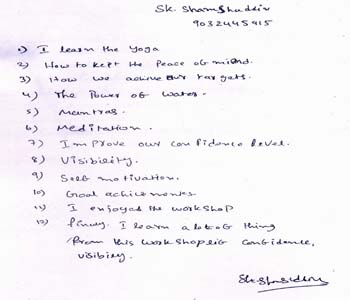 SK. Shamshuddin
9032445915
1) I learn the Yoga
2) How to kept the peace of mind.
3) How we achive our targets.
4) The Power of water.
5) Mantras.
6) Meditation.
7) Improve our confidence level.
8) Visibility.
9) Self motivation.
10) Goal achicements
11) I enjoyed the workshop
12) finaly. I learn a lot of thing
from this workshop, confidence,
visibility.